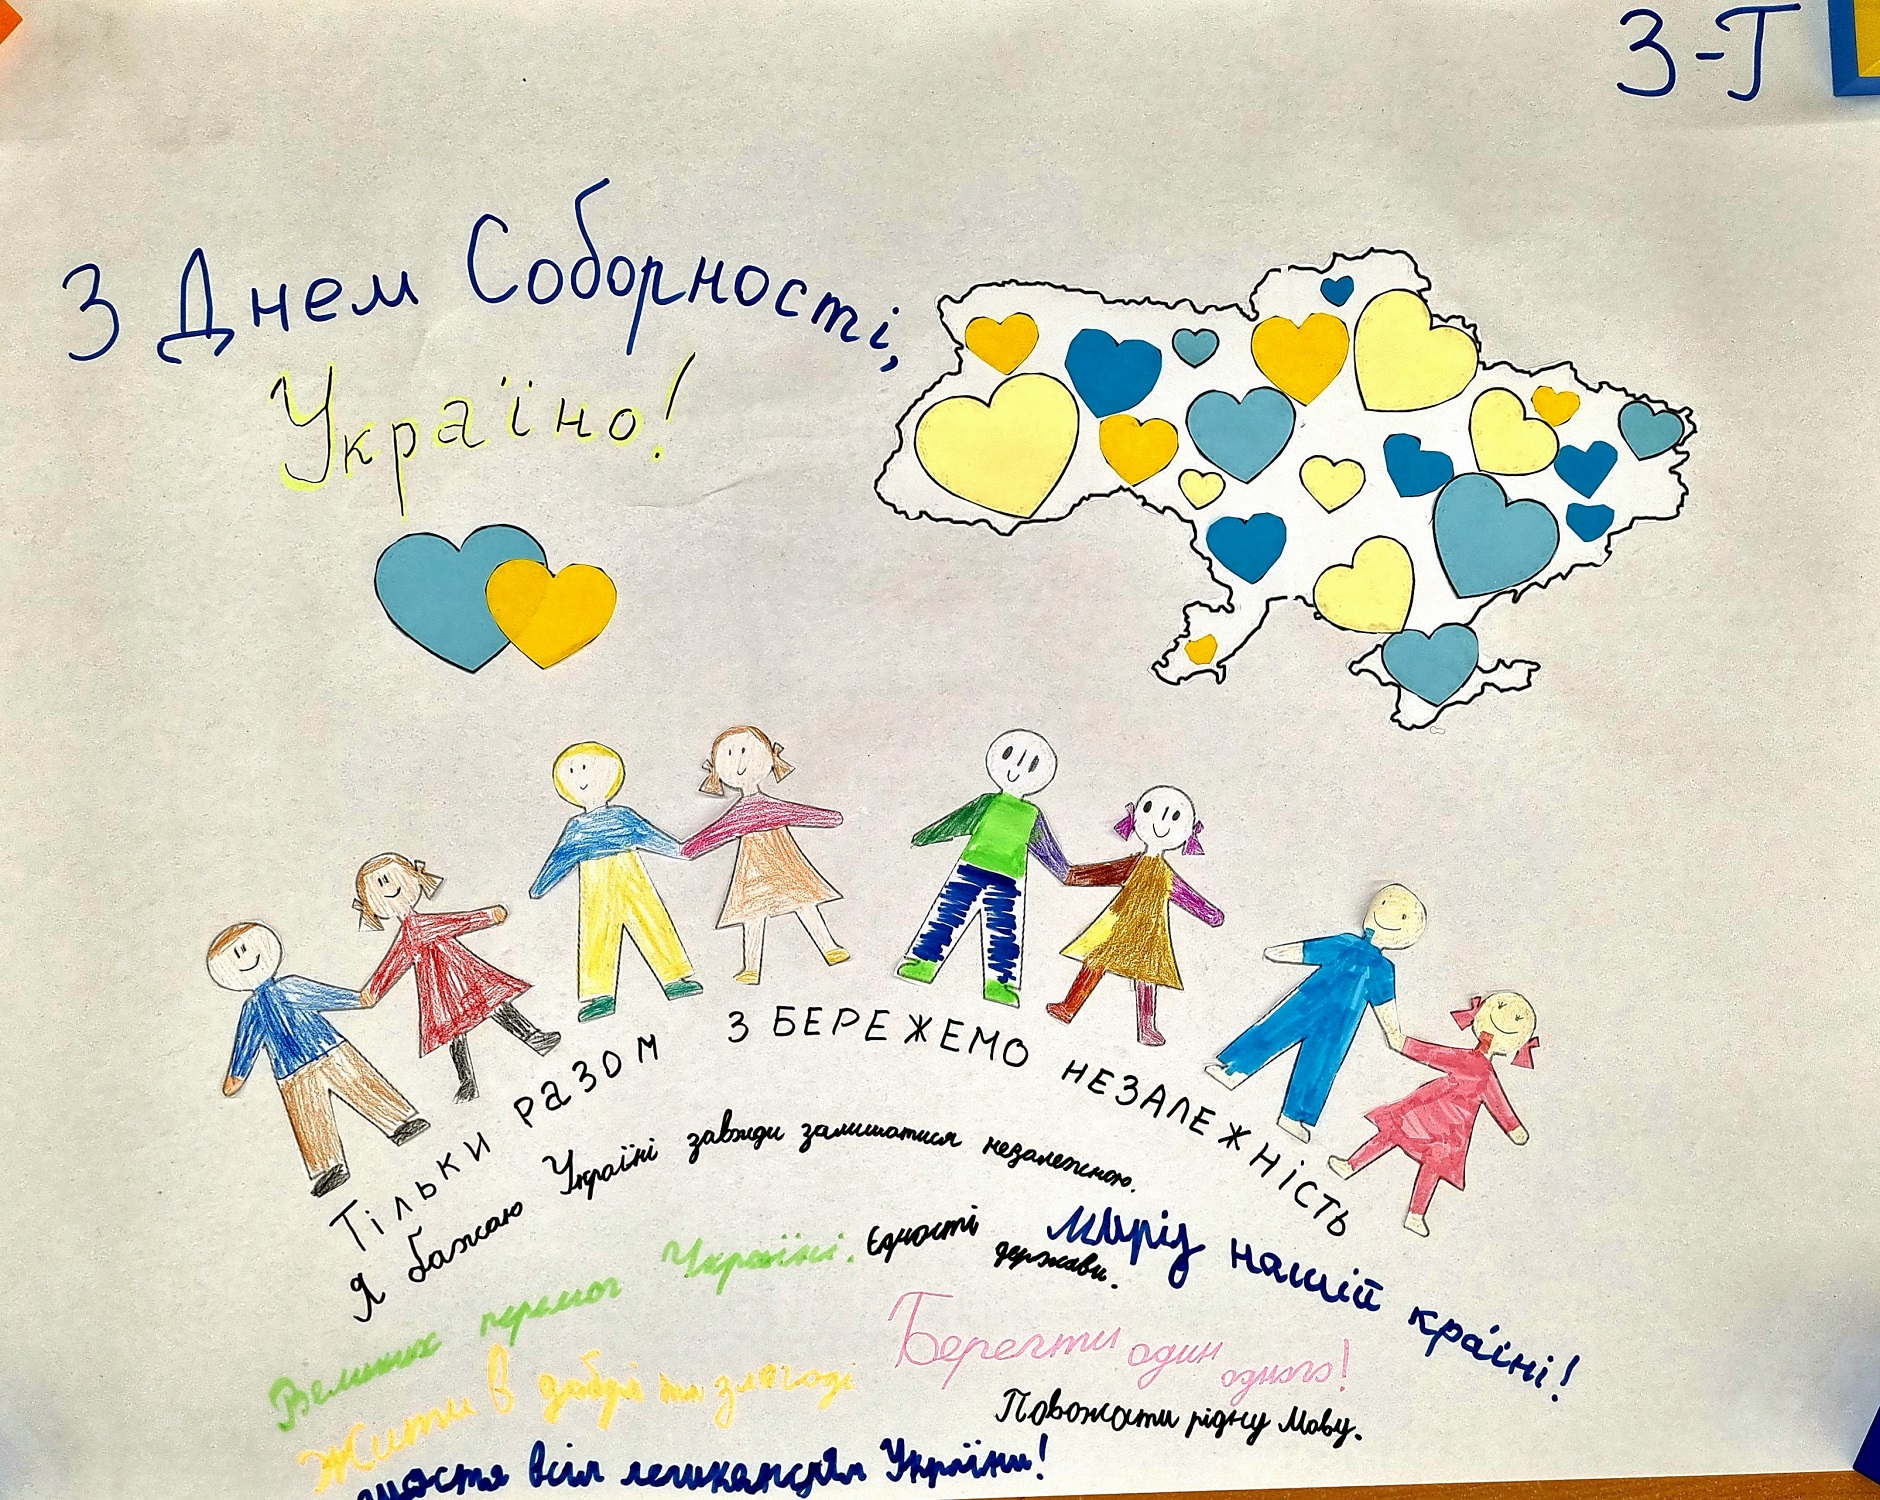 3-Г
З Днем Соборності,
Україно!
Тільки разом збережемо незалежність
Я бажаю Україні завжди залишатися незалежною.
Великих перемог Україні.
Єдності держави.
Миру нашій країні!
Жити в добрі та злагоді
Берегти один одного!
Поважати рідну мову.
щастя всім Україны!